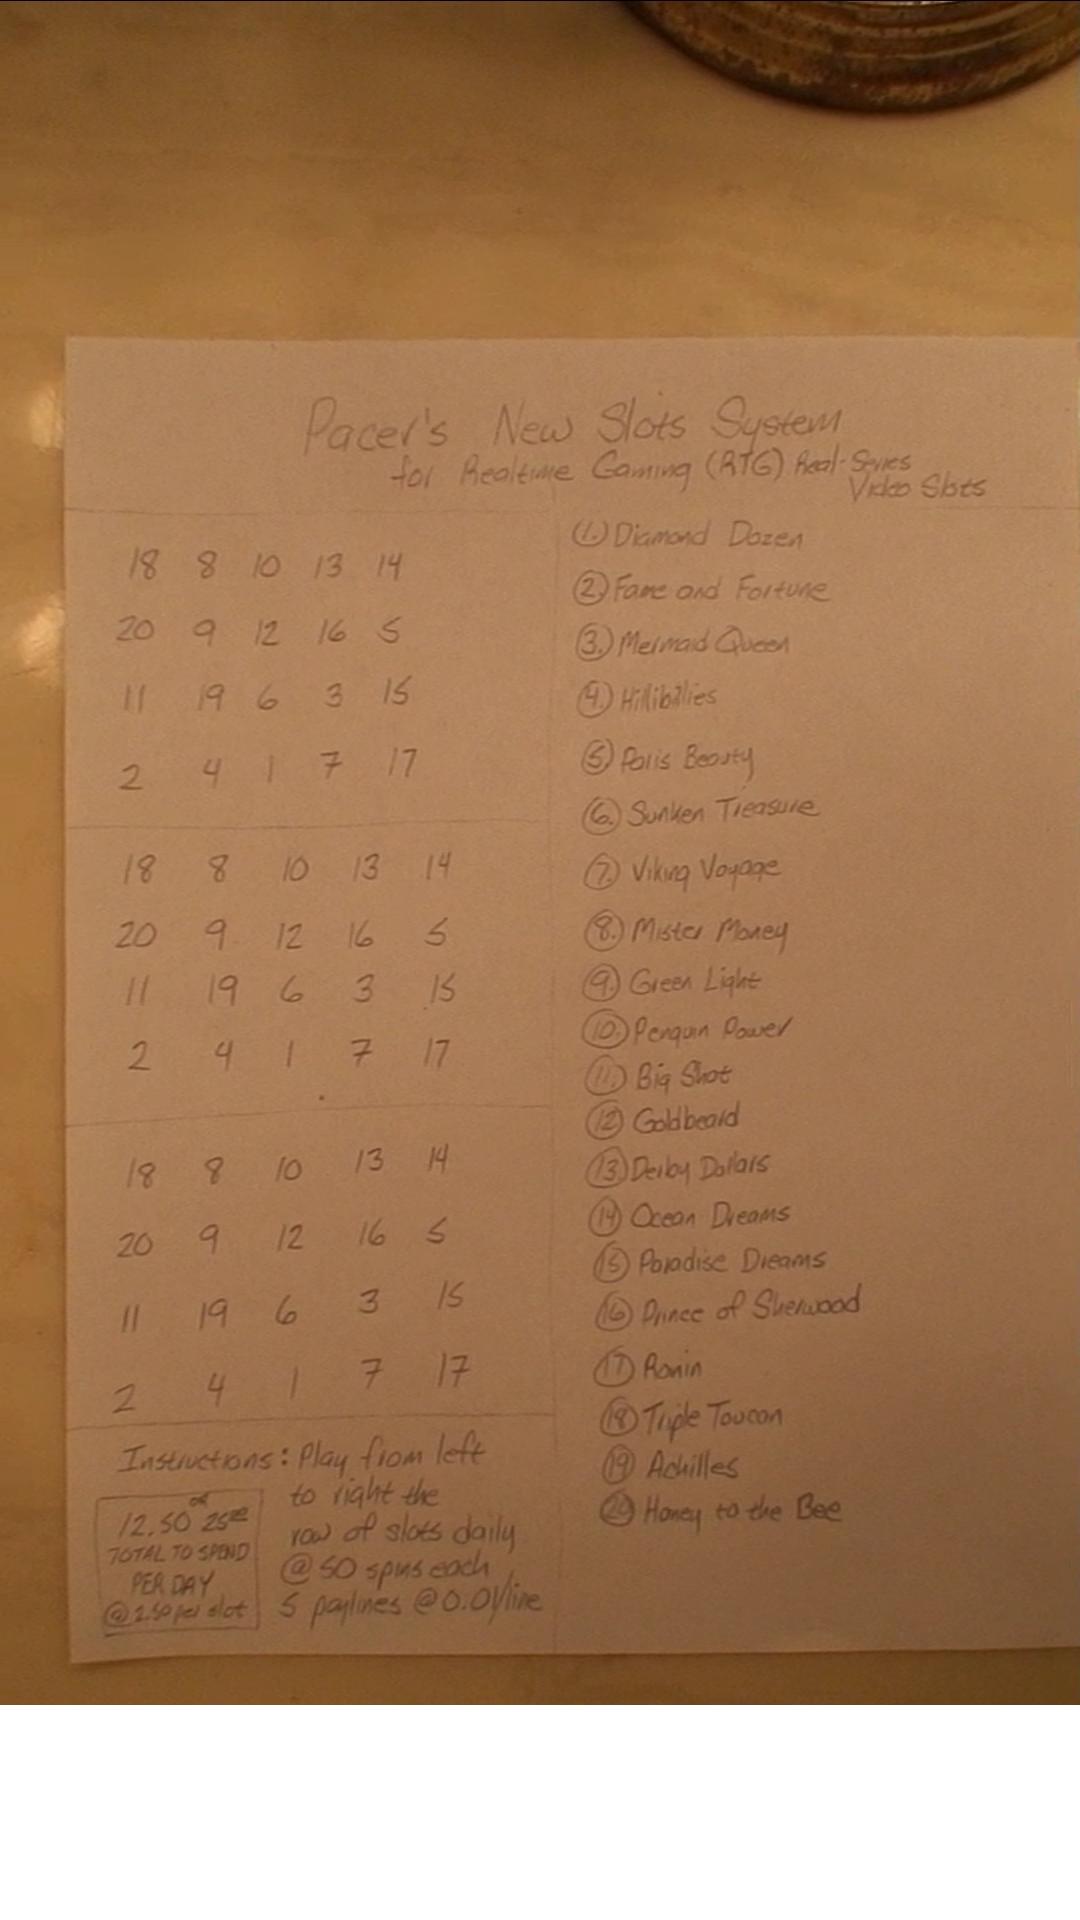 Pacer's New Slots System
for Realtime Gaming (RTG) Real-Series
Video Slots
18 8 10 13 14
20 9 12 16 5
11 19 6 3 15
2 4 1 7 17
18 8 10 13 14
20 9 12 16 5
11 19 6 3 15
2 4 1 7 17
18 8 10 13 14
20 9 12 16 5
11 19 6 3 15
2 4 1 7 17
Instructions: Play from left
to right the
row of slots daily
@ 50 spins each
5 paylines @ 0.01/line
or
12.50 25.00
TOTAL TO SPEND
PER DAY
@ 2.50 per slot
1. Diamond Dozen
2. Fame and Fortune
3. Mermaid Queen
4. Hillibillies
5. Paris Beauty
6. Sunken Treasure
7. Viking Voyage
8. Mister Money
9. Green Light
10. Penguin Power
11. Big Shot
12 Goldbeard
13. Derby Dollars
14 Ocean Dreams
15 Paradise Dreams
16 Prince of Sherwood
17 Ronin
18 Triple Toucan
19 Achilles
20 Honey to the Bee